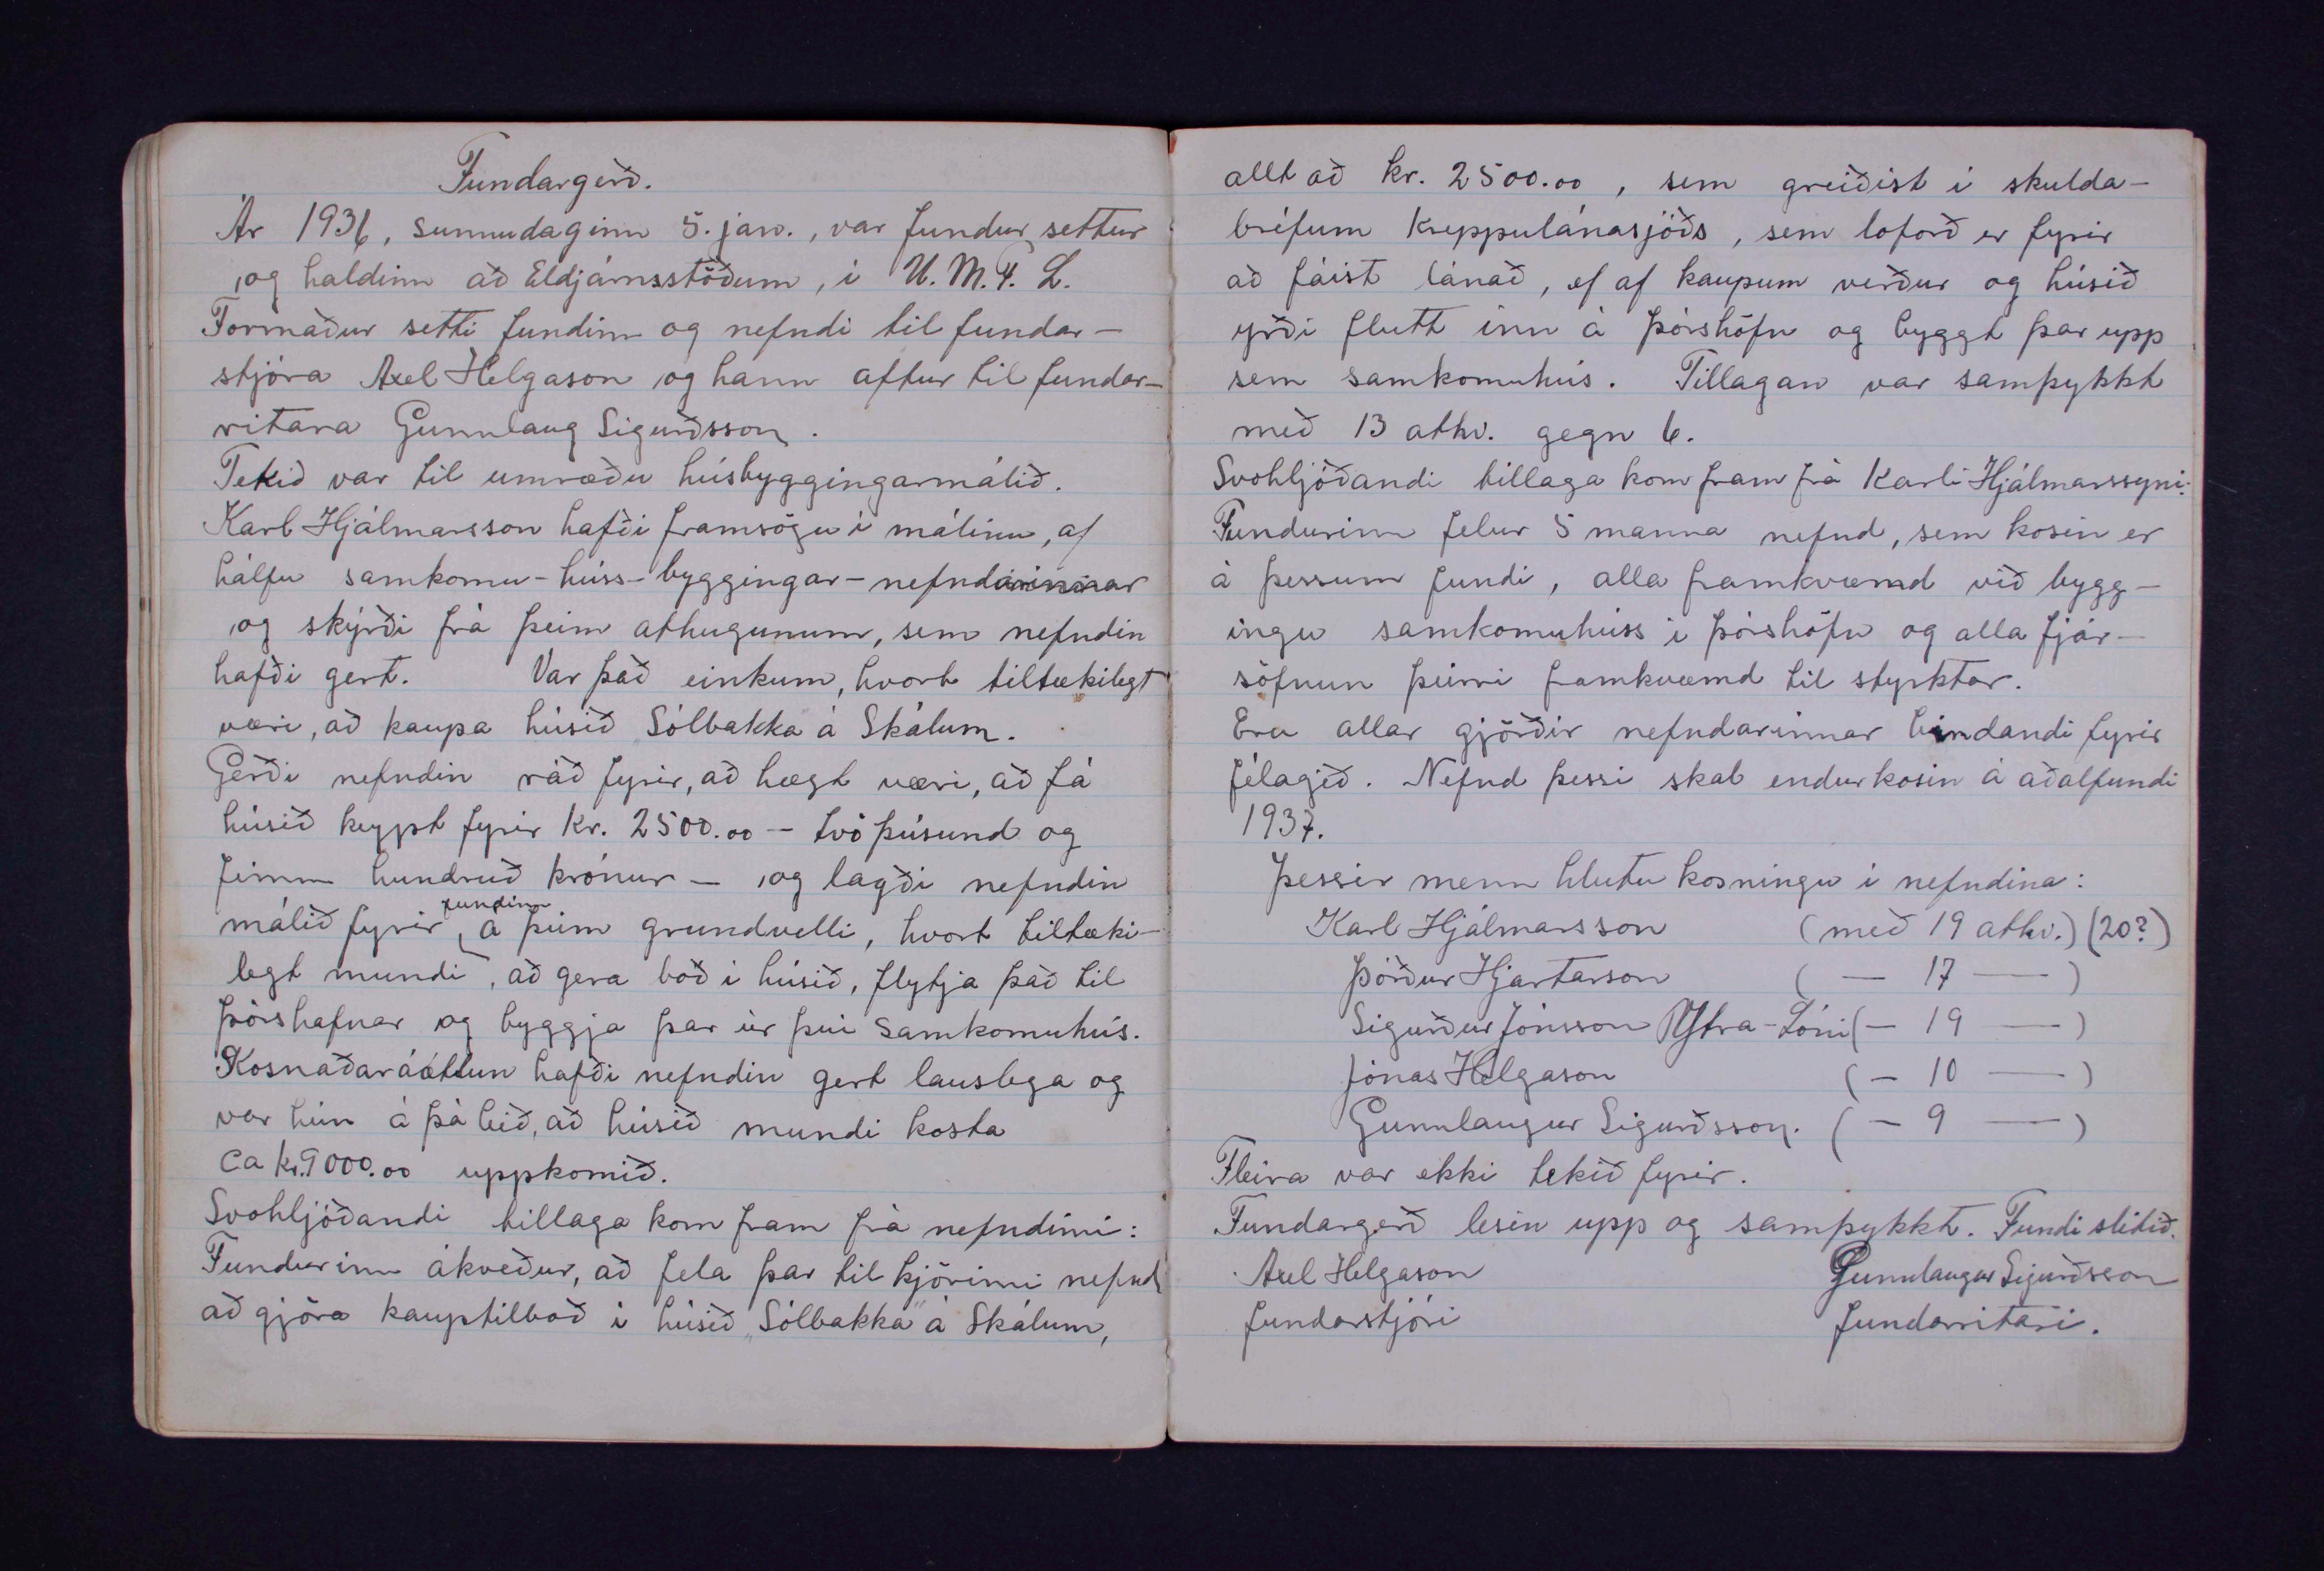 Fundargerð.
Ár 1936, sunnudaginn 5. jan., var fundur settur
og haldinn að Eldjárnsstöðum, í U. M. F. L.
Formaður setti fundinn og nefndi til fundar-
stjóra Axel Helgason og hann aftur til fundar-
ritara Gunnlaug Sigurðsson.
Tekið var til umræðu húsbyggingarmálið.
Karl Hjálmarsson hafði framsögu í málinu, af
hálfu samkomu-húss-byggingar-nefndarinnar
og skýrði frá þeim athugunum, sem nefndin
hafði gert. Var það einkum, hvort tiltækilegt
væri, að kaupa húsið Sólbakka á Skálum.
Gerði nefndin ráð fyrir, að hægt væri, að fá
húsið keypt fyrir kr. 2500.00 - tvö þúsund og
fimm hundruð krónur - og lagði nefndin
málið fyrir fundinn á þeim grundvelli, hvort tiltæki-
legt mundi, að gera boð í húsið, flytja það til
Þórshafnar og byggja þar úr því samkomuhús.
Kosnaðaráætlun hafði nefndin gert lauslega og
var hún á þá leið, að húsið mundi kosta
ca kr. 9000.00 uppkomið.
Svohljóðandi tillaga kom fram frá nefndinni:
Fundurinn ákveður, að fela þar til kjörinni nefnd
að gjöra kauptilboð í húsið „Sólbakka" á Skálum,
allt að kr. 2500.00, sem greiðist í skulda-
bréfum Kreppulánasjóðs, sem loforð er fyrir
að fáist lánað, ef af kaupum verður og húsið
yrði flutt inn á Þórshöfn og byggt þar upp
sem samkomuhús. Tillagan var samþykkt
með 13 atkv. gegn 6.
Svohljóðandi tillaga kom fram frá Karli Hjálmarssyni:
Fundurinn felur 5 manna nefnd, sem kosin er
á þessum fundi, alla framkvæmd við bygg-
ingu samkomuhúss í Þórshöfn og alla fjár-
söfnun þeirri framkvæmd til styrktar.
Eru allar gjörðir nefndarinnar bindandi fyrir
félagið. Nefnd þessi skal endurkosin á aðalfundi
1937.
Þessir menn hlutu kosningu í nefndina:
Karl Hjálmarsson (með 19 atkv.) (20?)
Þórður Hjartarson ( - 17 - )
Sigurður Jónsson Ytra-Lóni ( - 19 - )
Jónas Helgason ( - 10 - )
Gunnlaugur Sigurðsson. ( - 9 - )
Fleira var ekki tekið fyrir.
Fundargerð lesin upp og samþykkt. Fundi slitið.
Axel Helgason Gunnlaugur Sigurðsson
fundarstjóri fundarritari.